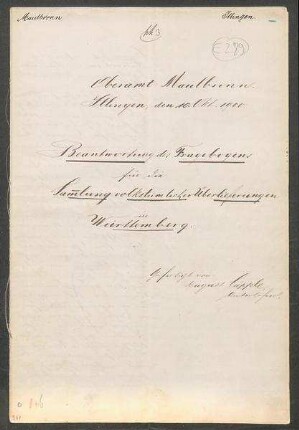 Maulbronn Illingen.
E 299
Oberamt Maulbronn.
Illingen, den 10. Okt. 1900.
Beantwortung des Fragebogens
für die
Sammlung volkstümlicher Überlieferungen
in
Württemberg.
Gefertigt von
August